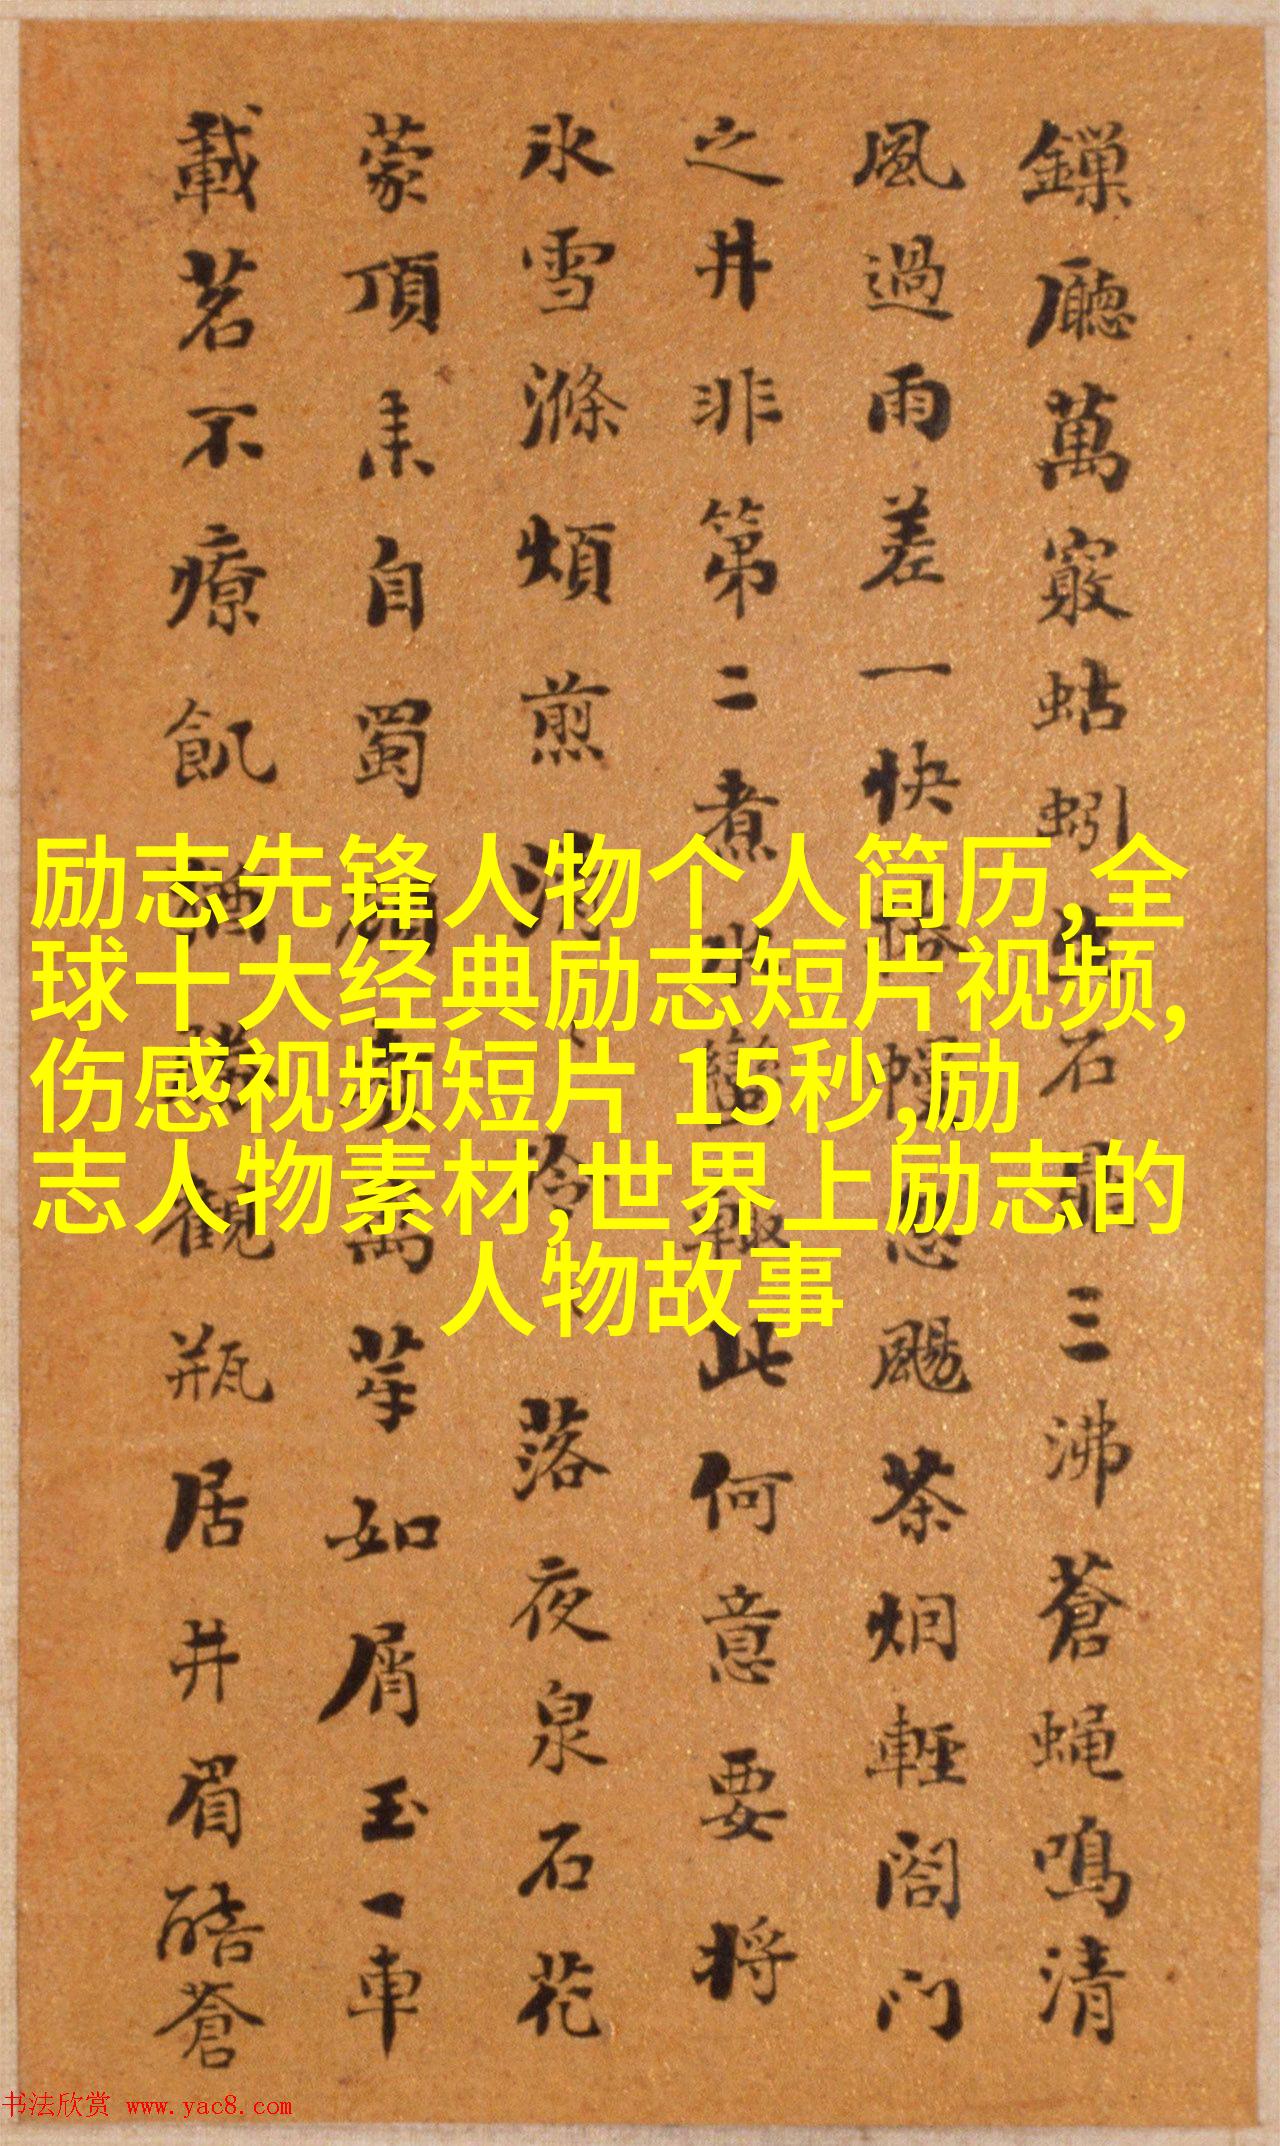 廳萬竅蛄蚓石鼎三沸蒼蠅鳴清
風過雨差一快颺茶烟輕閤門
之井非第二煮趣此何意要将
氷雪滌煩煎消冷落夜泉石花
蒙頂来自蜀萬芽如屑玉一車
載茗不療飢酒觀瓶居井眉醅蒼
励志先锋人物个人简历,全
球十大经典励志短片视频,
伤感视频短片 15秒,励
志人物素材,世界上励志的
人物故事
书法欣赏 www.yac8.com